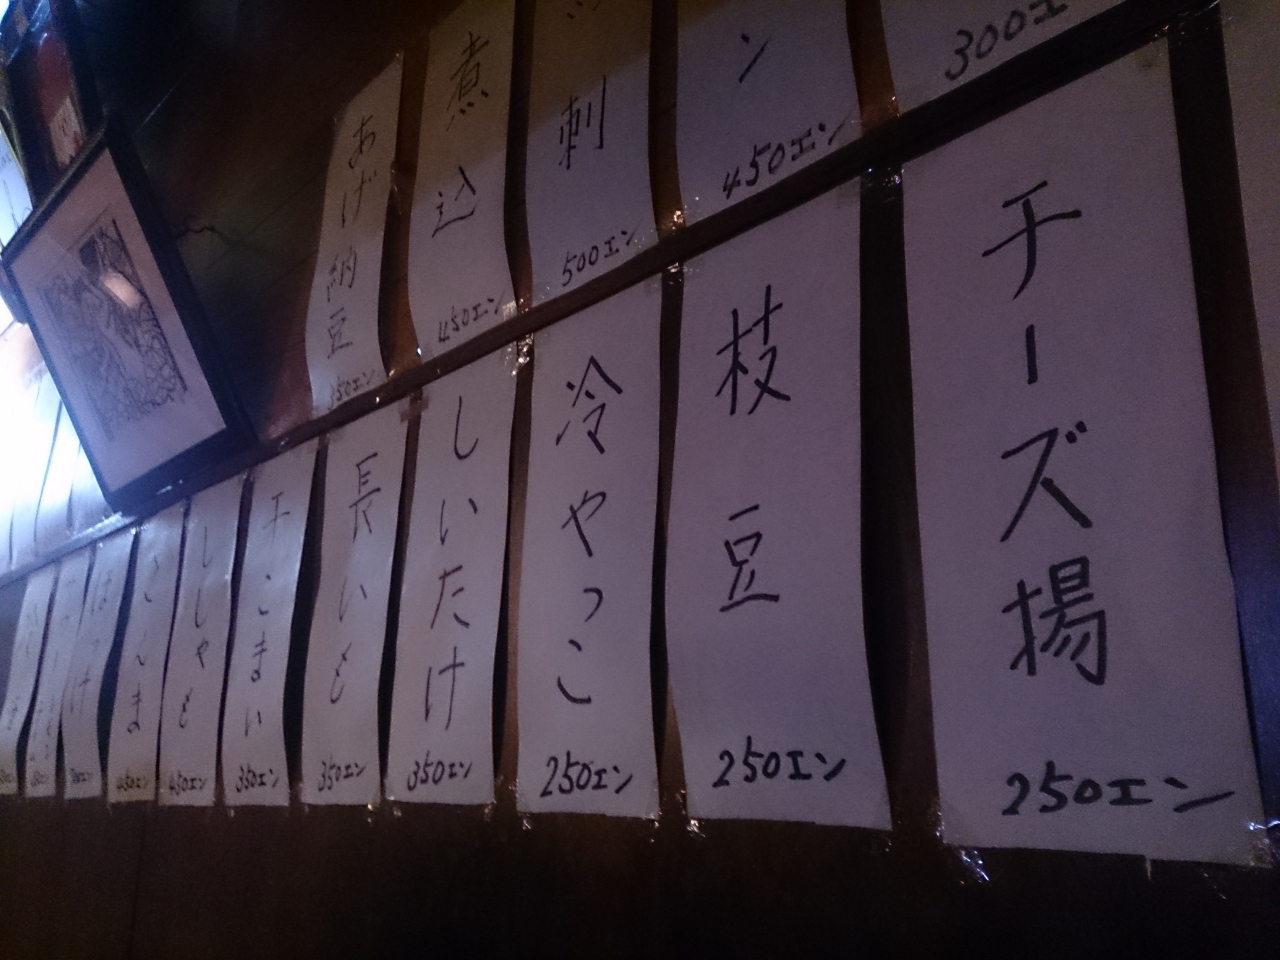 300エン
ン
450エン
刺
500エン
煮込
450エン
あげ納豆
350エン
チーズ揚
250エン
枝豆
250エン
冷やっこ
250エン
しいたけ
350エン
長いも
350エン
干こまい
350エン
ししゃも
450エン
450エン